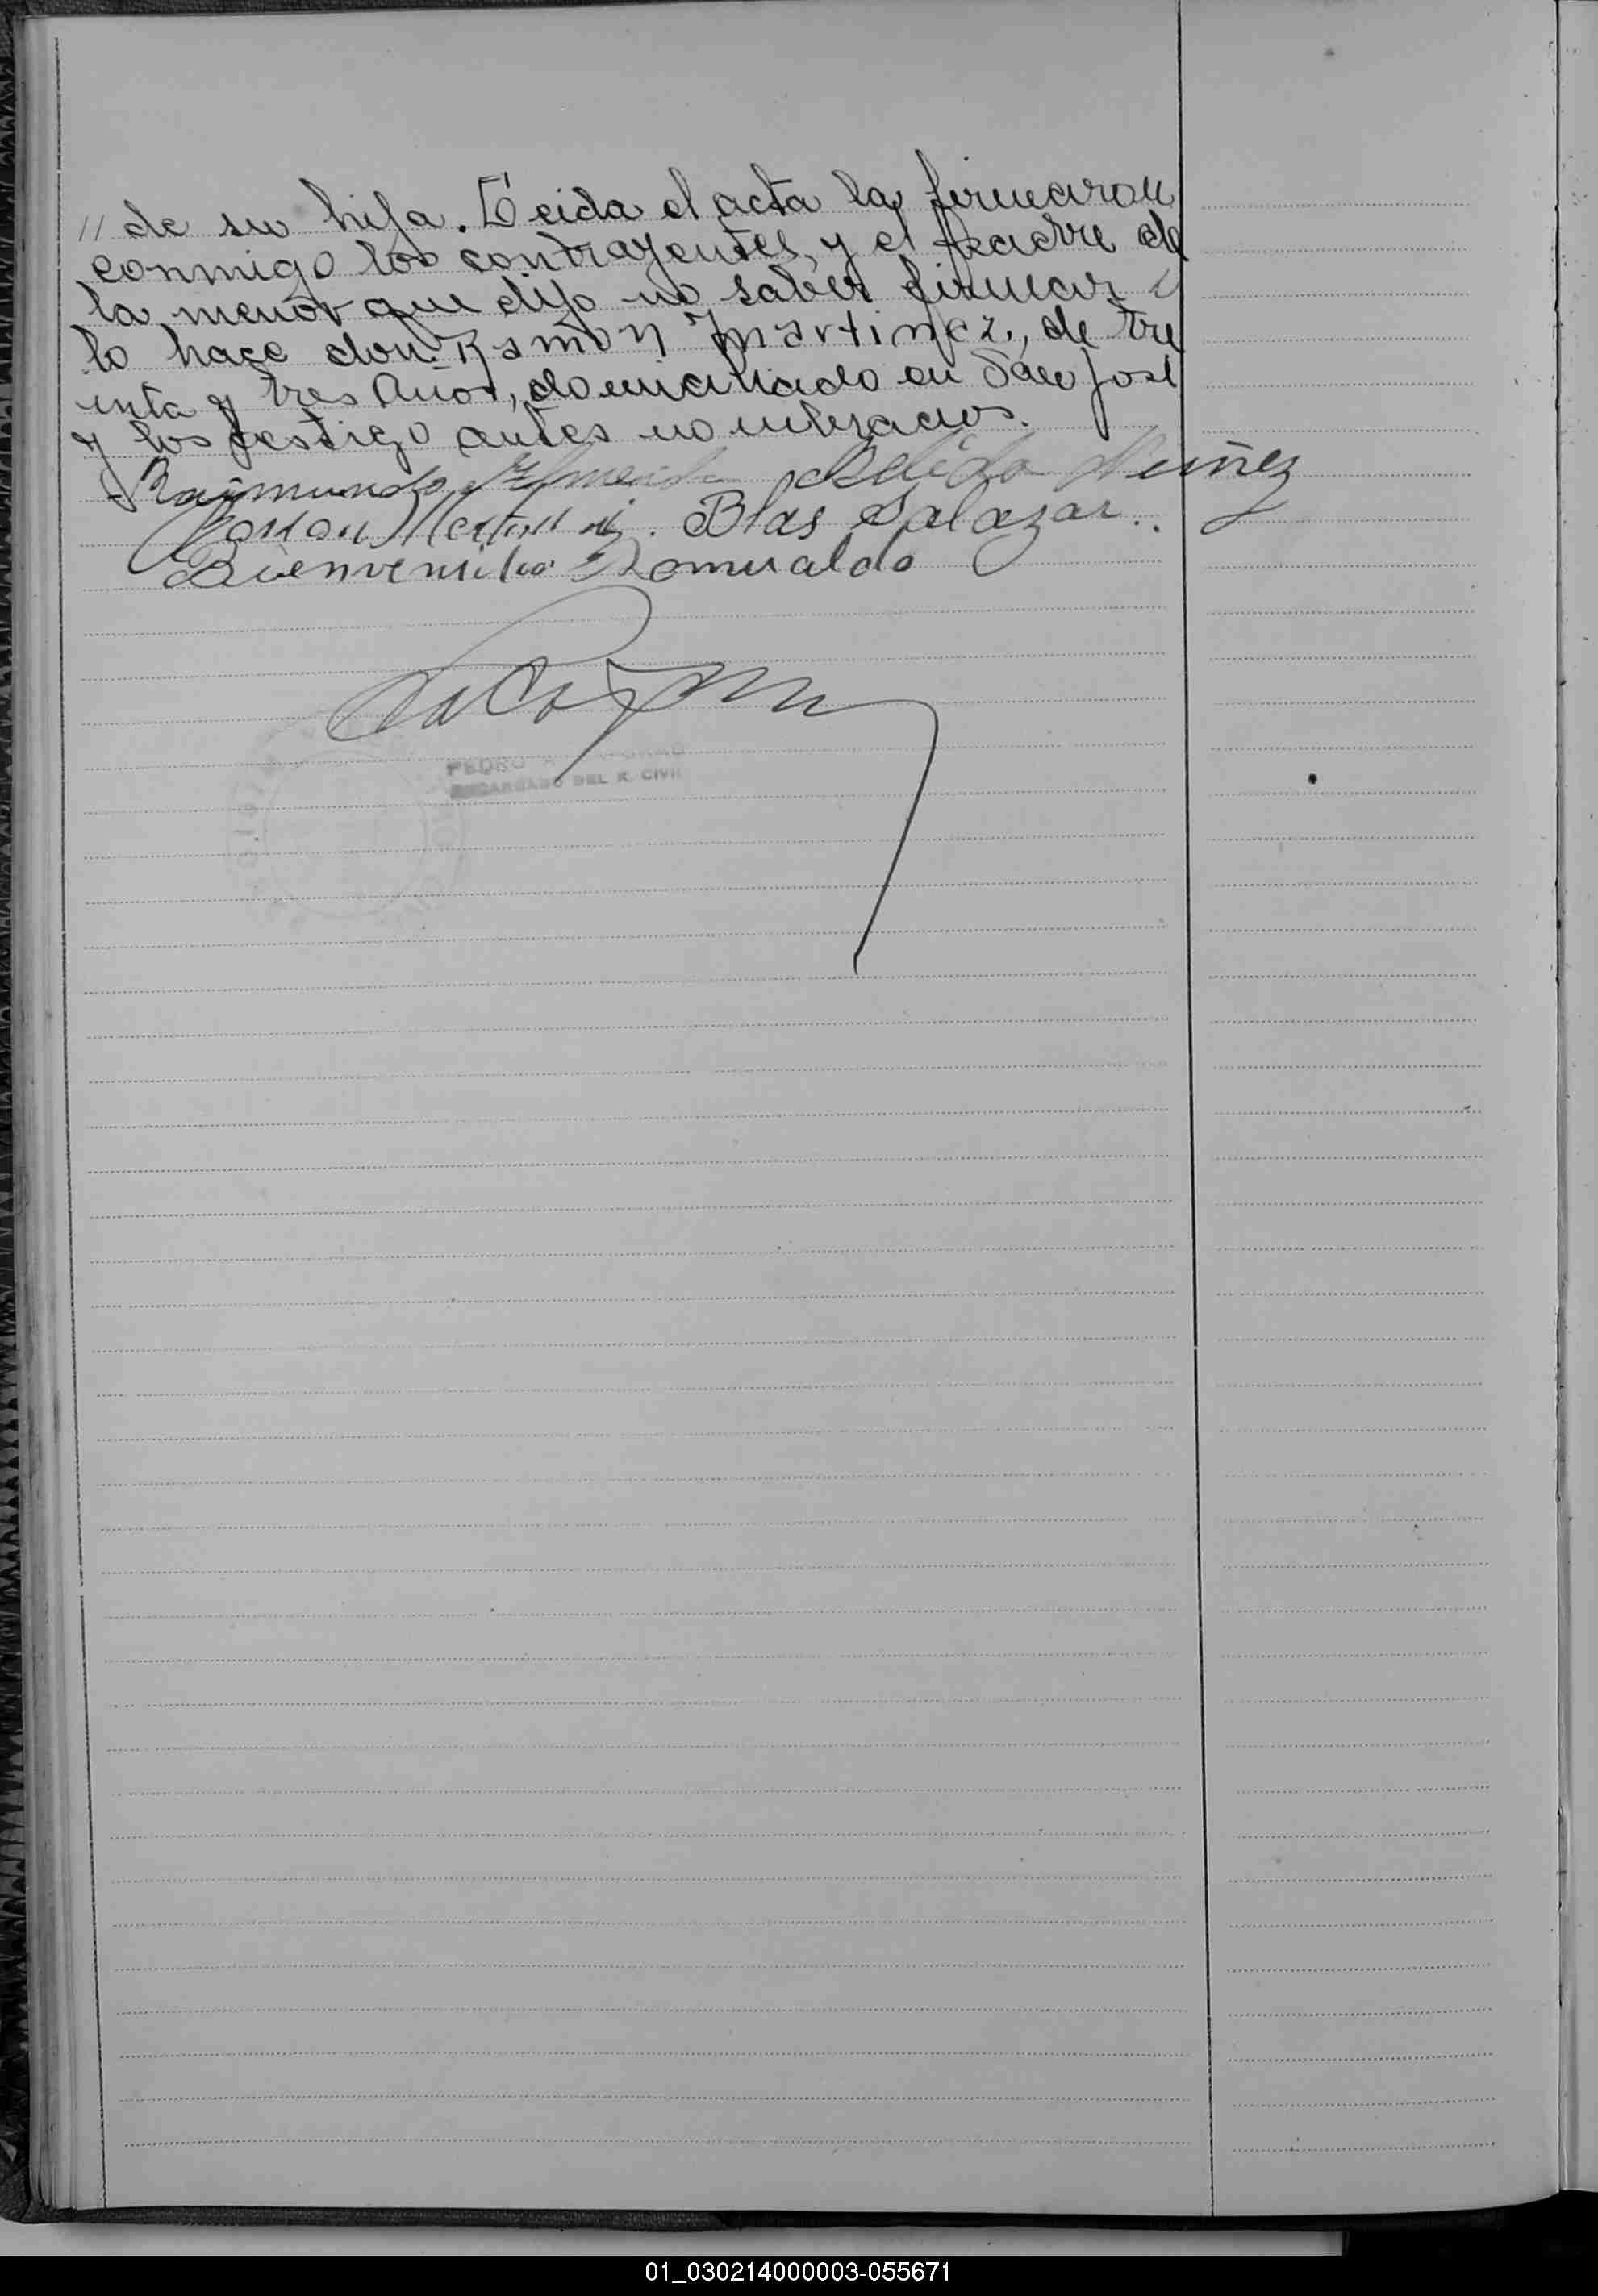 // de su hija. Leida el acta la firmaron
conmigo los contrayentes, y el padre de
la menor que dijo no saber firmar y
lo hace don Ramón Martinez, de tre
inta y tres años, domiciliado en San José
y los testigo antes nombrados.
Raimundo Almeida Delida Nuñez
Ramon Martinez. Blas Salazar..
Bienvenido Romualdo
PEDRO A.
ENCARGADO DEL R. CIVIL
01_030214000003-055671